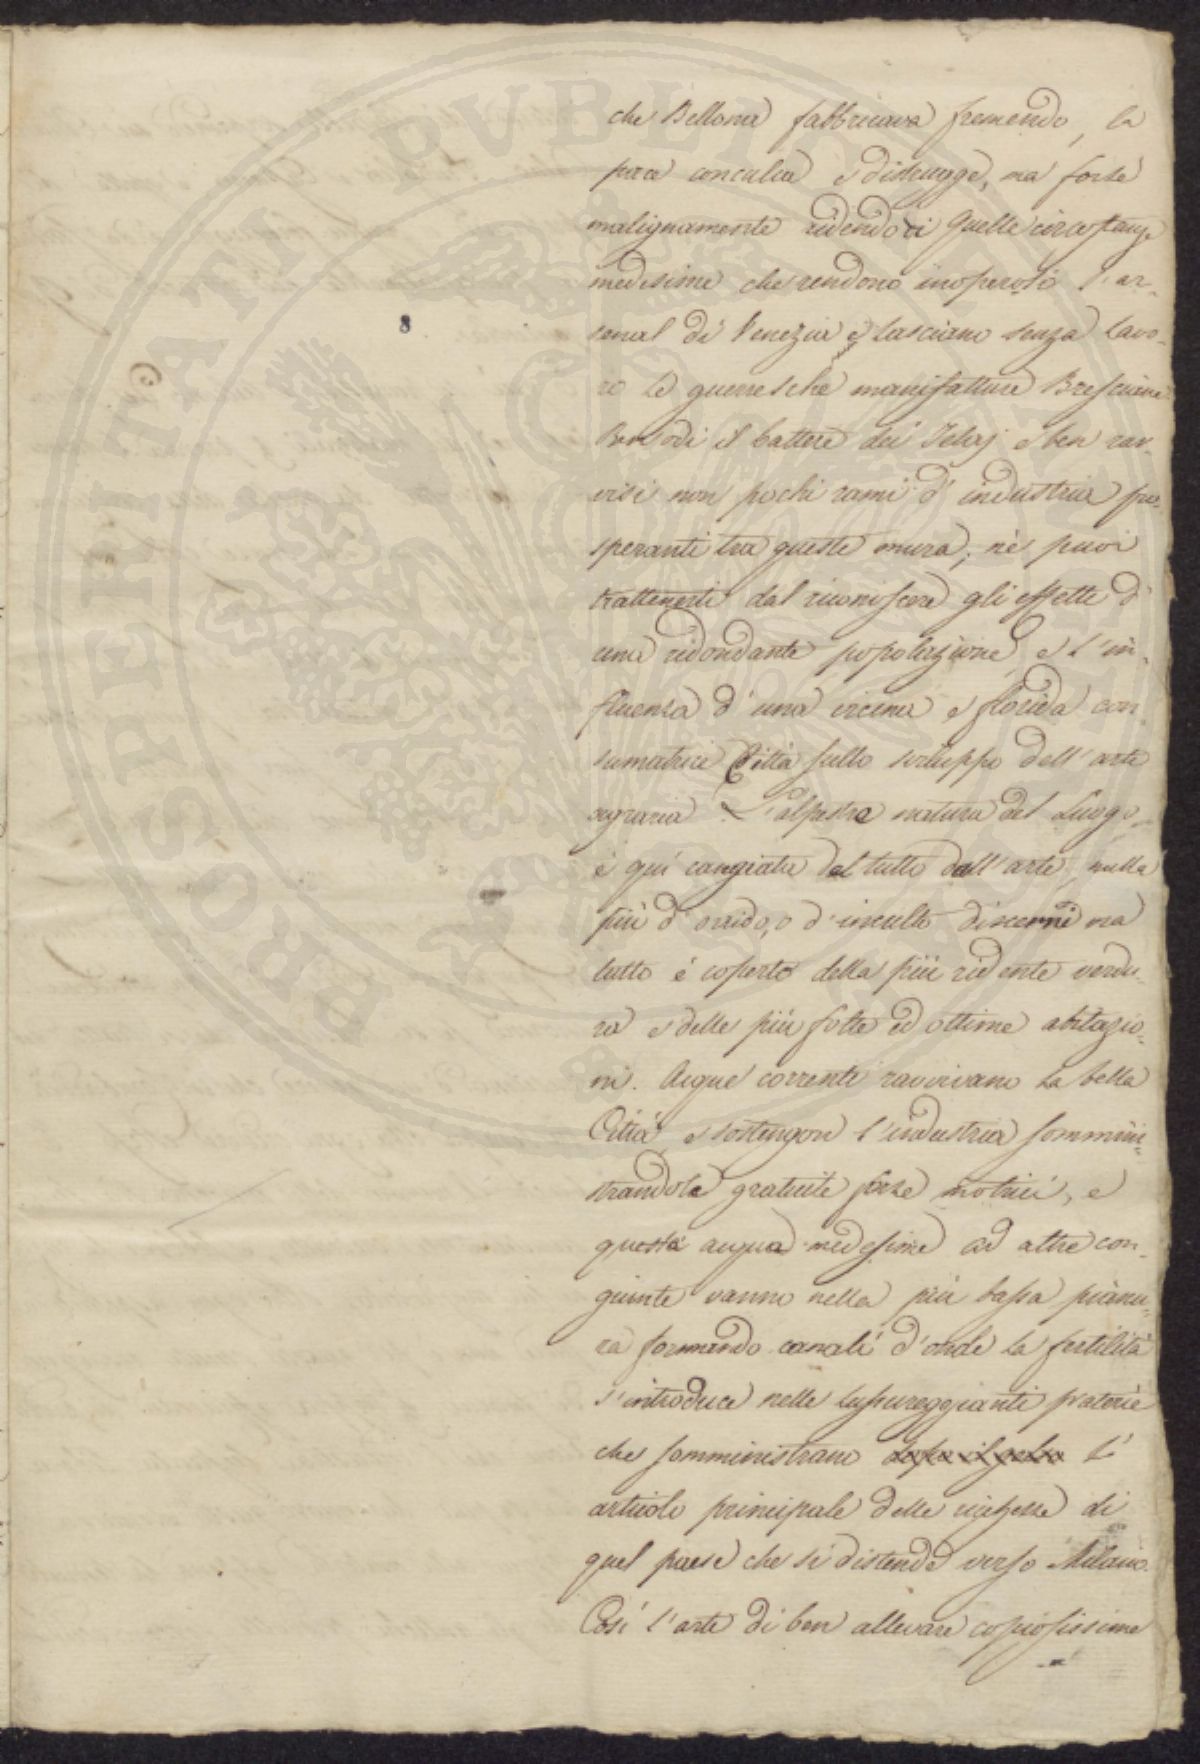 PROSPERITATI PVBLICAE
che Bellona fabbricava fremendo, la
pace conculca e distrugge, ma forse
malignamente ridendo di quelle circostanze
medesime che rendono inoperoso l'ar-
senal di Venezia e lasciano senza lavo-
ro le guerresche manifatture Bresciane
quì odi il battere dei Telaj e ben rav-
visi non pochi rami d'industria pro-
speranti tra queste mura, nè puoi
trattenerti dal riconoscere gli effetti d'
una ridondante popolazione e l'in-
fluenza d'una vicina e florida con-
sumatrice Città sullo sviluppo dell'arte
agraria. L'alpestre natura del Luogo
è quì cangiata del tutto dall'arte, nulla
più d'orrido, o d'inculto discerni ma
tutto é coperto della più ridente verdu-
ra e delle più folte ed ottime abitazio-
ni. Acque correnti ravvivano la bella
Città e sostengon l'industria sommini-
strandole gratuite forze motrici, e
queste acque medesime ad altre con-
giunte vanno nella più bassa pianu-
ra formando canali d'onde la fertilità
s'introduce nelle lussureggianti praterie
che somministrano dopo il gelso l'
articolo principale delle ricchezze di
quel paese che si distende verso Milano.
Così l'arte di ben allevare copiosissime